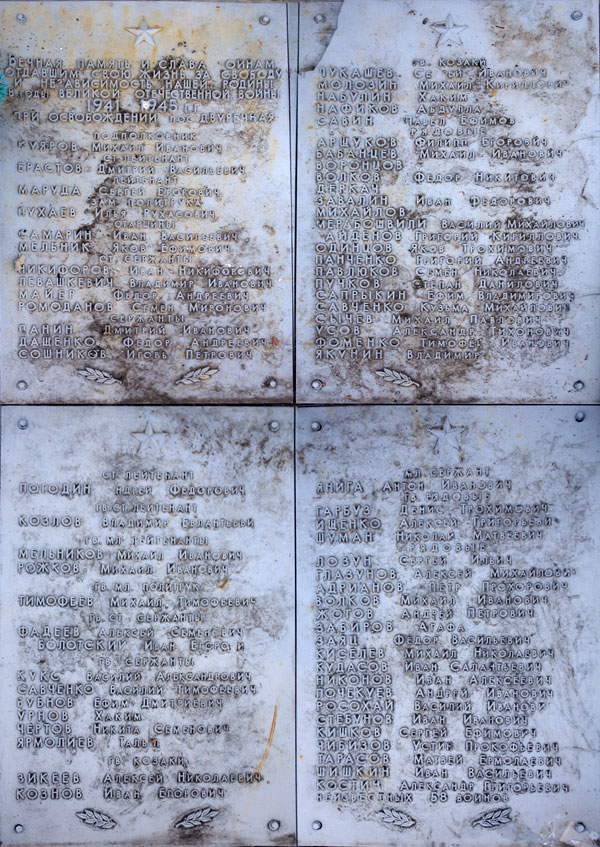 ВЕЧНАЯ ПАМЯТЬ И СЛАВА ОИНАМ,
ОТДАВШИМ СВОЮ ЖИЗНЬ ЗА СВОБОДУ
И НЕЗАВИСИМОСТЬ НАШЕЙ РОДИНЫ
В ГОДЫ ВЕЛИКОЙ ОТЕЧЕСТВЕННОЙ ВОЙНЫ
1941 1945 ГГ
ПРИ ОСВОБОЖДЕНИИ ПОС ДВУРЕЧНАЯ
ПОДПОЛКОВНИК
КУЯРОВ МИХАИЛ ИВАНОВИЧ
СТ ЛЕЙТЕНАНТ
БРАСТОВ ДМИТРИЙ ВАСИЛЬЕВИЧ
ЛЕЙТЕНАНТ
МАРУДА СЕРГЕЙ ЕФРОВИЧ
ПОЛИТРУКА
ПУХАЕВ ИЛЬЯ
СТАРШИНЫ
САМАРИН ИВАН ВАСИЛЬЕВИЧ
МЕЛЬНИК ЯКОВ
СТ СЕРЖАНТЫ
НИКИФОРОВ ИВАН НИКИФОРОВИЧ
ЛЕВАШКЕВИЧ ВЛАДИМИР ИВАНОВИЧ
МАЙЕР ФЕДОР АНДРЕЕВИЧ
РОМОДАНОВ СЕМЕН МИРОНОВИЧ
СЕРЖАНТЫ
САНИН ДМИТРИЙ ИВАНОВИЧ
ДАЩЕНКО ФЕДОР АНДРЕЕВИЧ
СОШНИКОВ ИГОРЬ ПЕТРОВИЧ
ГВ. КАЗАКИ
ЧУКАШЕВ ИВАНОВИЧ
МОЛОЗИН МИХАИЛ КИРИЛЛОВИЧ
НАБУЛИН ХАКИМ
НАФИКОВ АБДУЛЛА
САВИН ПАВЕЛ ЕФИМОВ
РЯДОВЫЕ
АРШУКОВ ФИЛИПП ЕГОРОВИЧ
БАБАНЦЕВ МИХАИЛ ИВАНОВИЧ
ВОРОНЦОВ
ВОЛКОВ ФЕДОР НИКИТОВИЧ
ДЕРКАЧ
ЗАВАЛИН ИВАН ФЕДОРОВИЧ
МИХАЙЛОВ
МЕРАБОШВИЛИ ВАСИЛИЙ МИХАЙЛОВИЧ
ГРИГОРИЙ КИРИЛЛОВИЧ
ОДИНОКИЙ ЯКОВ ТРОХИМОВИЧ
ПАНЧЕНКО ГРИГОРИЙ АНДРЕЕВИЧ
ПАВЛЮКОВ СЕМЕН НИКОЛАЕВИЧ
ПУЧКОВ СТЕПАН ДАНИЛОВИЧ
САПРЫКИН ЕФИМ ВЛАДИМИРОВИЧ
САВЧЕНКО КУЗЬМА МИХАЙЛОВИЧ
СЫЧЕВ МИХАИЛ ПАВЛОВИЧ
УСОВ АЛЕКСАНДР ТИХОНОВИЧ
ФОМЕНКО ТИМОФЕЙ ИВАНОВИЧ
ЯКУНИН ВЛАДИМИР
СТ ЛЕЙТЕНАНТ
ПОГОДИН НДРЕЙ ФЕДОРОВИЧ
ГВ СТ ЛЕЙТЕНАНТ
КОЗЛОВ ВЛАДИМИР ЕВЛАНТЬЕВИ
ГВ. МЛ ЛЕЙТЕНАНТЫ
МЕЛЬНИКОВ МИХАИЛ ИВАНОВИЧ
РОЖКОВ МИХАИЛ ИВАНОВИЧ
ГВ. МЛ. ПОЛИТРУК
ТИМОФЕЕВ МИХАИЛ ТИМОФЬЕВИЧ
ГВ. СТ. СЕРЖАНТЫ
ФАДЕЕВ АЛЕКСЕЙ СЕМЕНОВИЧ
БОЛОТСКИЙ ИВАН ЕГОРО И
ГВ СЕРЖАНТЫ
КУКС ВАСИЛИЙ АЛЕКСАНДРОВИЧ
САВЧЕНКО ВАСИЛИЙ ТИМОФЕЕВИЧ
БУБНОВ ЕФИМ ДМИТРИЕВИЧ
УРНОВ ХАКИМ
ЧЕРТОВ НИКИТА СЕМЕНОВИЧ
ЯРМОЛИЕВ
ГВ. КАЗАКИ
ЗИКЕЕВ АЛЕКСЕЙ НИКОЛАЕВИЧ
КОЗНОВ ИВАН ЕГОРОВИЧ
МЛ. СЕРЖАНТ
КНИГА АНТОН ИВАНОВИЧ
ГВ. РЯДОВЫЕ
ГАРБУЗ ДЕНИС ТРОХИМОВИЧ
ИЩЕНКО АЛЕКСЕЙ ГРИГОРЬЕВИ
ШУМАН НИКОЛАЙ МАТВЕЕВИЧ
РЯДОВЫЕ
ЛОЗУН СЕРГЕЙ ИЛЬИЧ
ГЛАЗУНОВ АЛЕКСЕЙ МИХАЙЛОВИ
АДРИАНОВ ПЕТР ПРОХОРОВИЧ
ВОЛКОВ МИХАИЛ ИВАНОВИЧ
ЖОРОВ АНДРЕЙ ПЕТРОВИЧ
ЗАБИРОВ АГАФА
ЗАЯЦ ФЕДОР ВАСИЛЬЕВИЧ
КИСЕЛЕВ МИХАИЛ НИКОЛАЕВИЧ
КУДАСОВ ИВАН САЛАНТЬЕВИЧ
НИКОНОВ ИВАН АЛЕКСЕЕВИЧ
ПОЧЕКУЕВ АНДРЕЙ ИВАНОВИЧ
ПОСОХАЙ ВАСИЛИЙ ИВАНОВИ
СТЕБУНОВ ИВАН ИВАНОВИЧ
КИШКОВ СЕРГЕЙ ЕФИМОВИЧ
ТИБИЗОВ УСТИН ПРОКОФЬЕВИЧ
ТАРАСОВ МАТВЕЙ ЕРМОЛАЕВИЧ
ШИШКИН ИВАН ВАСИЛЬЕВИЧ
КОСТИЧ АЛЕКСАНДР ГРИГОРЬЕВИЧ
НЕИЗВЕСТНЫХ 68 ВОИНОВ